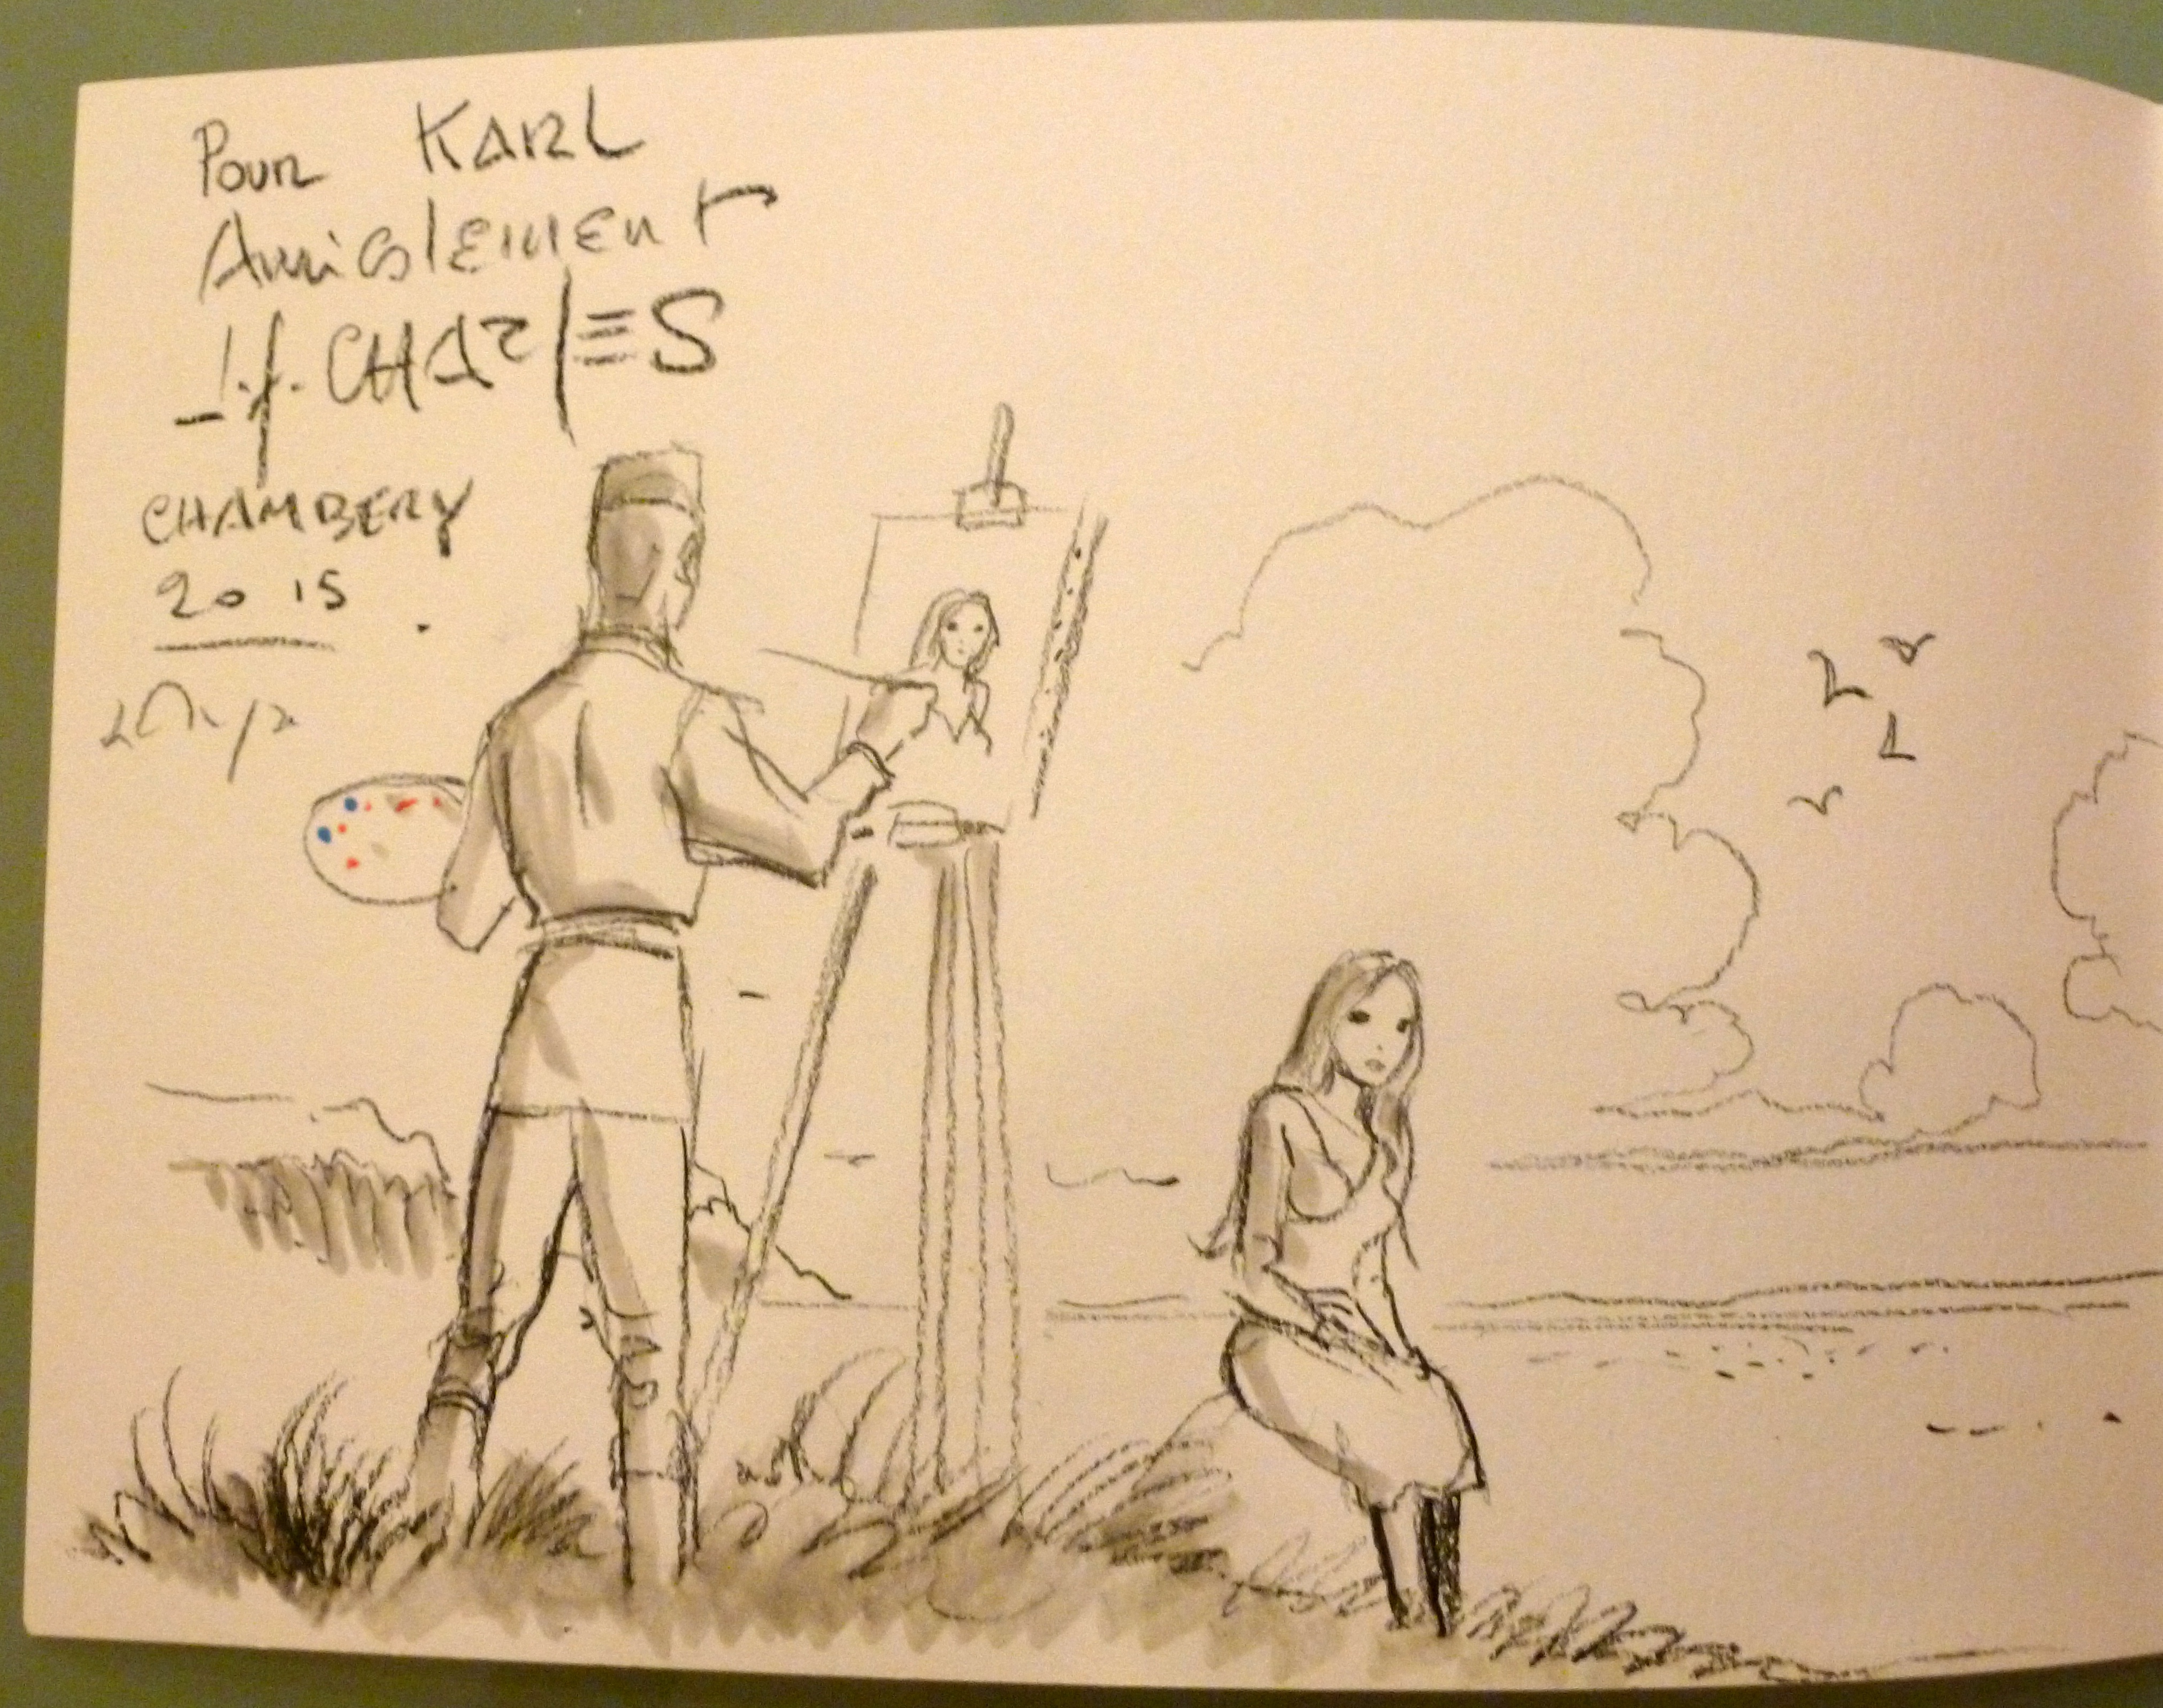 Pour KARL
Amicalement
J.f. CHARLES
CHAMBERY
2015